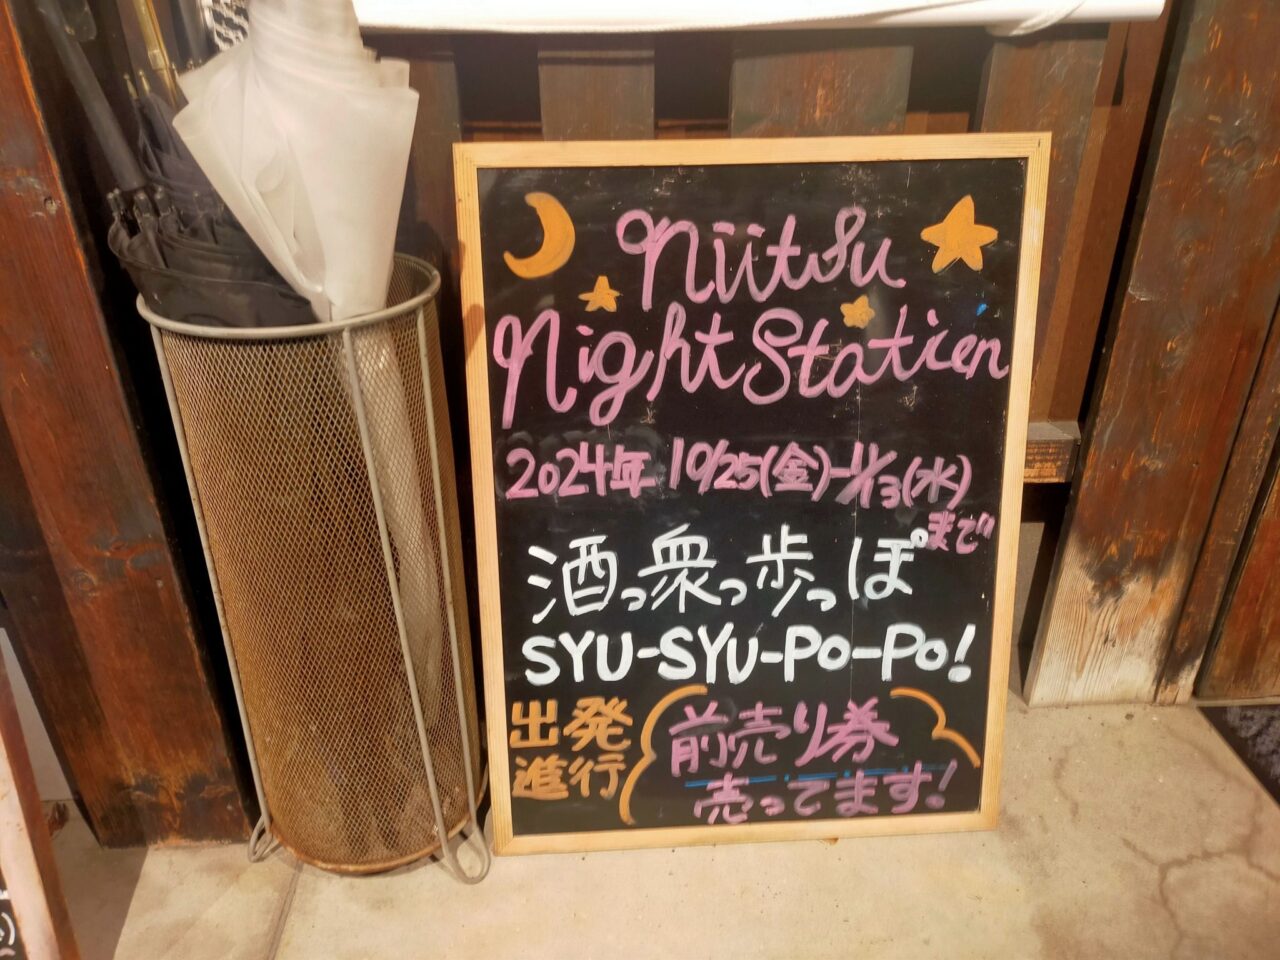 Niitsu
Night Station
2024年 10/25(金)-11/13(水)
まで
酒っ衆っ歩っぽ
SYU-SYU-PO-PO!
出発
進行
前売り券
売ってます!